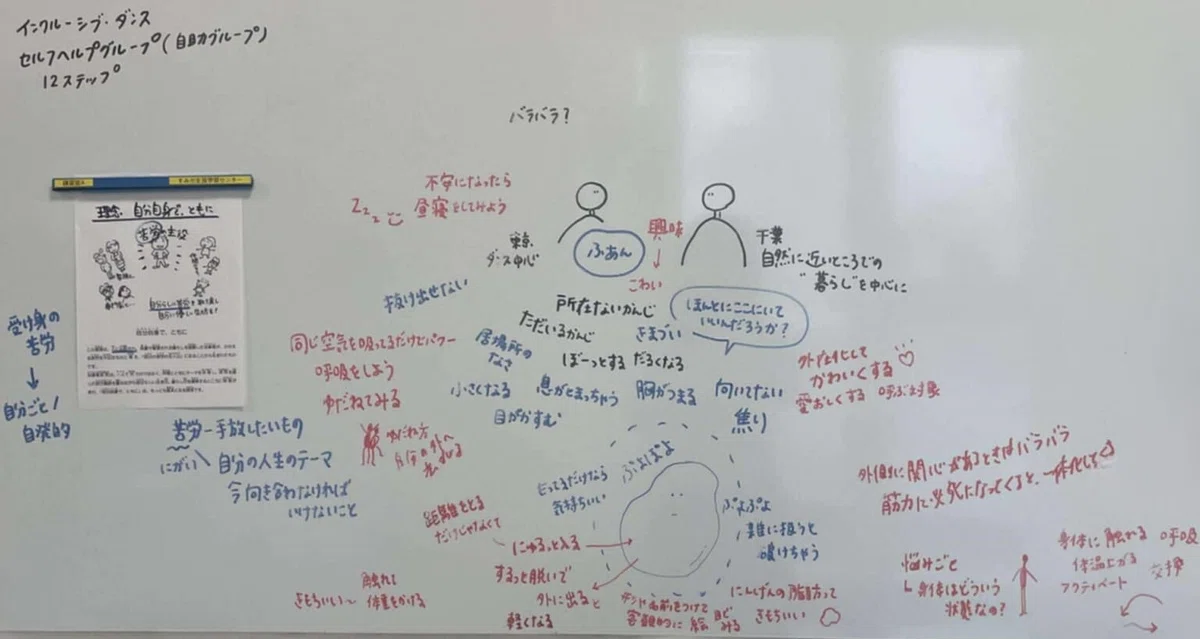 インクルーシブ・ダンス
セルフヘルプグループ(自助グループ)
12ステップ
バラバラ?
すみだ生涯学習センター
理念 自分自身で、ともに
苦労の主役
自分自身で、ともに
受け身の
苦労
自分ごと!
自発的
不安になったら
Zzz 昼寝をしてみよう
東京
ダンス中心
ふあん
興味
こわい
千葉
自然に近いところでの
"暮らし"を中心に
抜け出せない
所在ないかんじ
ただいるかんじ
きまづい
ほんとにここにいて
いいんだろうか?
同じ空気を吸ってるだけでパワー
呼吸をしよう
ゆだねてみる
居場所の
なさ
ぼーっとする だるくなる
小さくなる
息がとまっちゃう
胸がつまる
向いてない
焦り
目がかすむ
外在化して
かわいくする
愛おしくする 呼ぶ対象
苦労ー手放したいもの
にがい
自分の人生のテーマ
今向き合わなければ
いけないこと
ゆだね方
さわってるだけなら
気持ちいい
ぷよぷよ
ぷよぷよ
雑に扱うと
嘆けちゃう
外側に関心があるときはバラバラ
筋力に必死になってくると、一体化してく
距離をとる
だけじゃなくて
にゅるっと入る
するっと脱いで
外に出ると
軽くなる
触れて
きもちいい〜 体重をかける
名前をつけて
客観的に
みる
にんげんの脂肪って
きもちいい
悩みごと
身体はどういう
状態なの?
身体に触れる 呼吸
体温上がる
アクティベート
交換